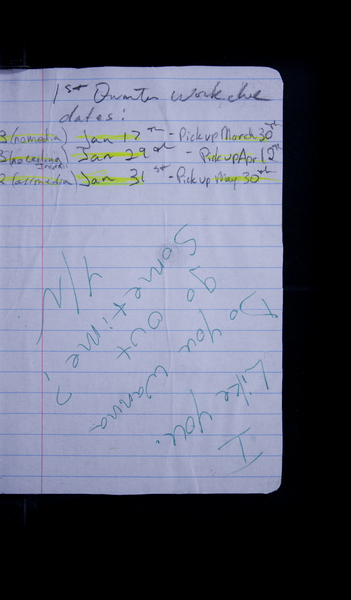 1st Quarter work due
dates:
3/nomedia) Jan 17th - Pick up March 30th
Jan 29th - Pick up Apr 12th
2/allmedia) Jan 31st - Pick up May 30th
I Like you.
Do you wanna
go out
sometime?
Y/N